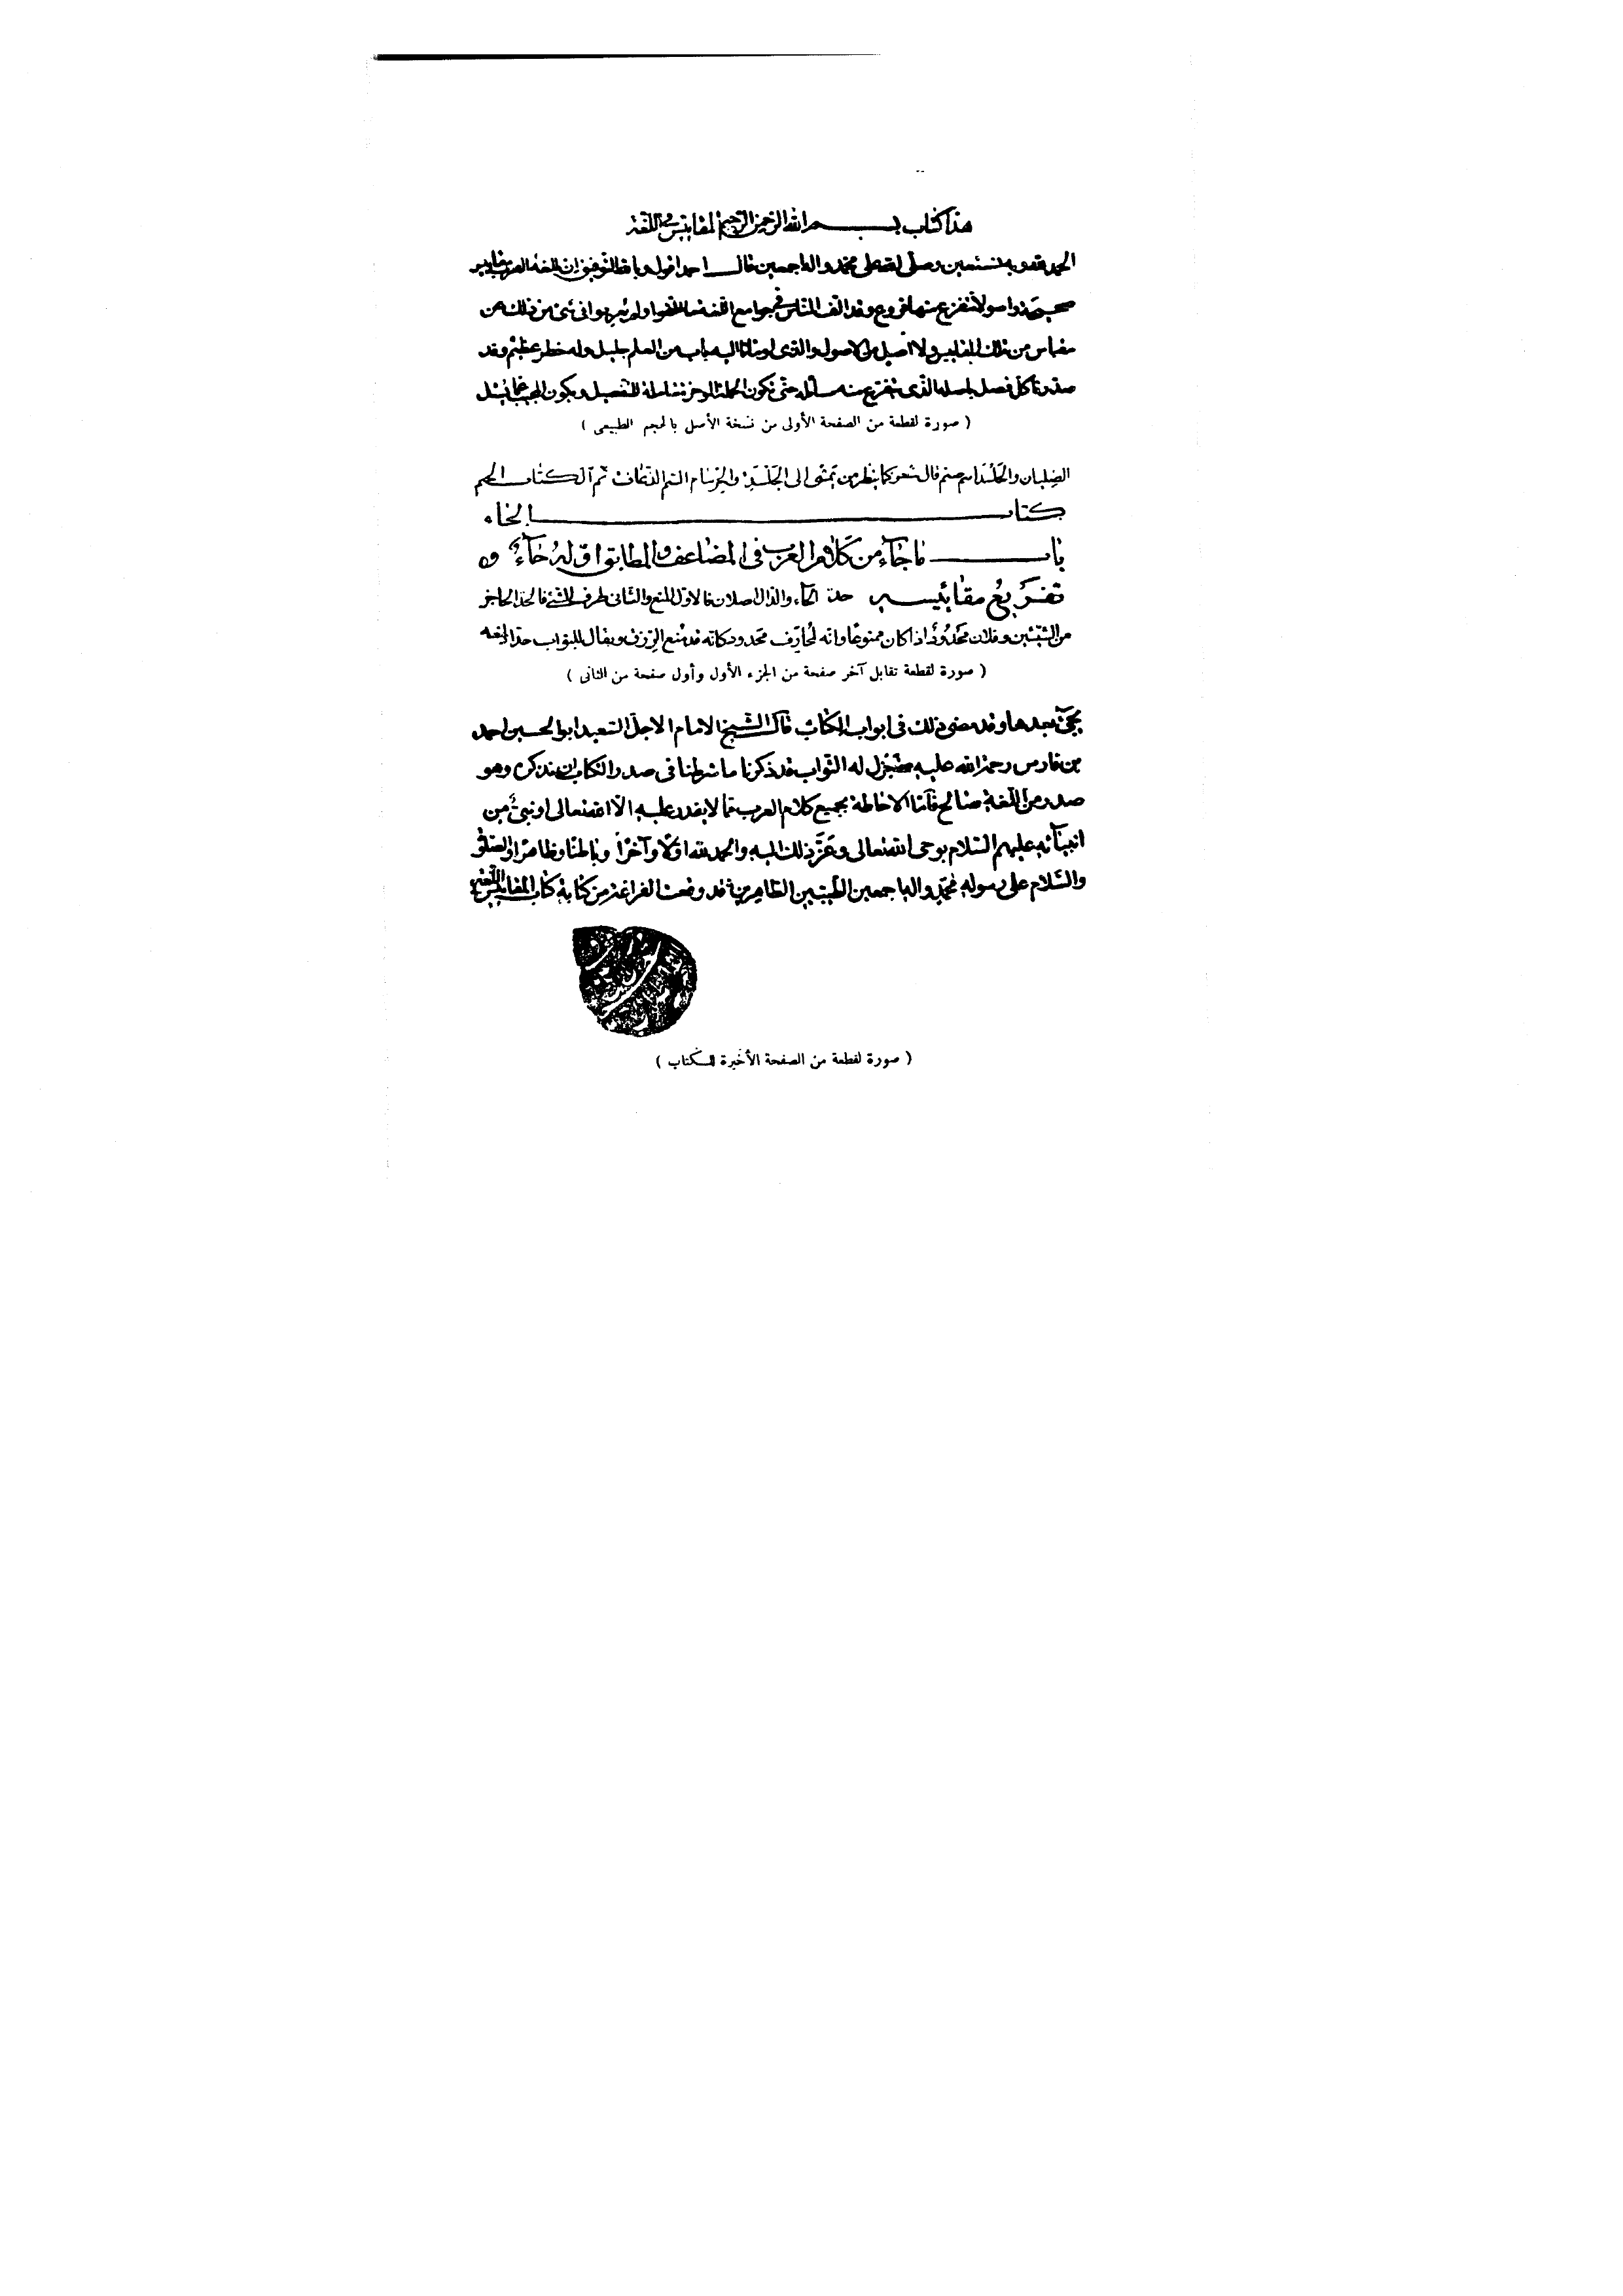 هذا كتاب بسم الله الرحمن الرحيم المقاييس في اللغة
الحمد لله وبه نستعين وصلى الله على محمد واله اجمعين قال احمد اقول وبالله التوفيق ان للغة العرب مقاييس
صحيحة واصولا تتفرع منها فروع وقد الف الناس في جوامع اللغة ما الفوا ولم يعربوا في شئ من ذلك عن
مقياس من تلك المقاييس ولا اصل من الاصول والذى اومانا اليه باب من العلم جليل وله خطر عظيم وقد
صدرنا كل فصل باصله الذى يتفرع منه مسائله حتى تكون الجملة الموجزة شاملة للتفصيل ويكون المجيب عما يسئل
( صورة لقطعة من الصفحة الأولى من نسخة الأصل بالحجم الطبيعى )
الصليان والجلسد اسم صنم قال شعر كما بيقر من يمشى الى الجلسد والجرسام السم الذعاف تم الكتاب الجيم
كتاب الحاء
باب ما جآء من كلام العرب فى المضاعف والمطابق اوله حآء
تفريع مقائيسه حد الحآء والدال اصلان فالاول المنع والثانى طرف الشئ فالحد الحاجز
من الشيئين وفلان محدود اذا كان ممنوعا وانه لمحارف محدود كانه قد منع الرزق ويقال للبواب حداد لمنعه
( صورة لقطعة تقابل آخر صفحة من الجزء الأول وأول صفحة من الثانى )
يجئ بعدها وقد مضى ذلك فى ابواب الكتاب قال الشيخ الامام الاجل السعيد ابو الحسين احمد
بن فارس رحمة الله عليه واجزل له الثواب قد ذكرنا ما شرطنا فى صدر الكتاب ان نذكره وهو
صدر من اللغة صالح فاما الاحاطة بجميع كلام العرب مما لا يقدر عليه الا الله تعالى او نبى من
انبيآئه عليهم السلام بوحى الله تعالى وعز ذلك اليه والحمد لله اولا وآخرا وباطنا وظاهرا والصلوة
والسلام على رسوله محمد واله اجمعين الطيبين الطاهرين قد وقعت الفراغة من كتابة كتاب المقاييس اللغة
( صورة لقطعة من الصفحة الأخيرة للكتاب )